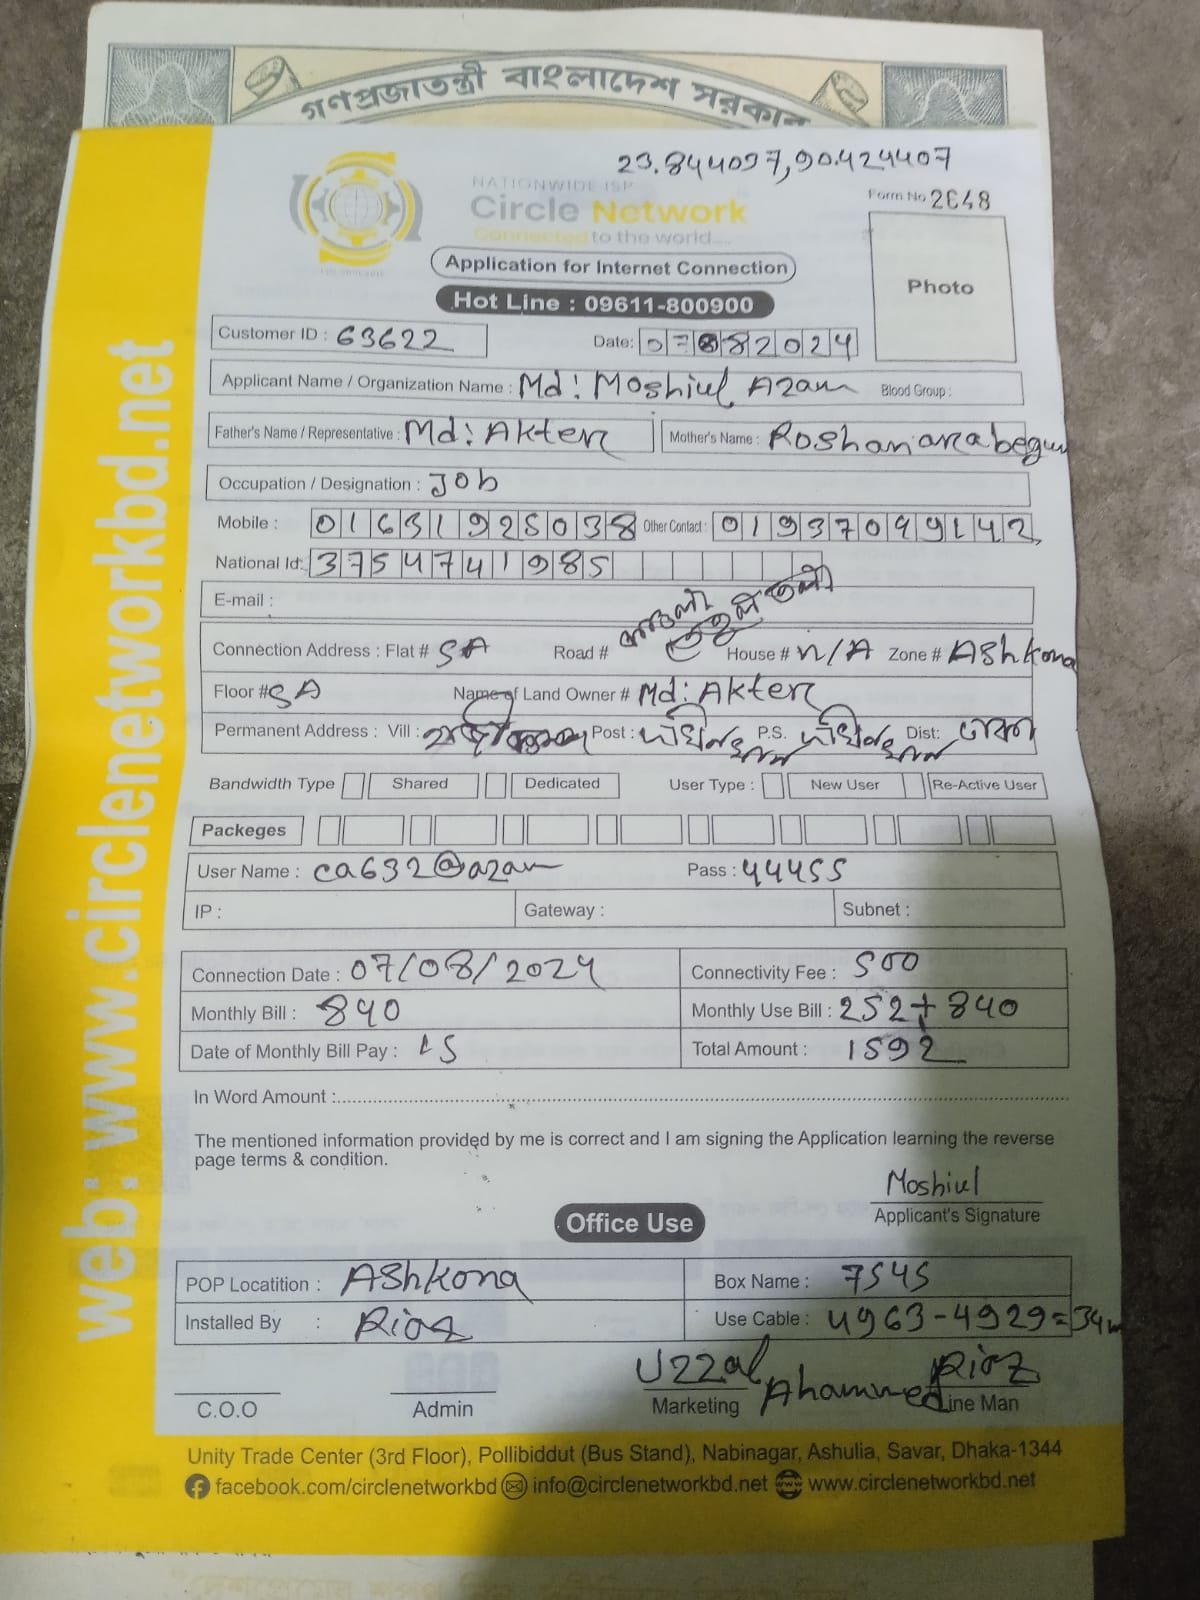 গণপ্রজাতন্ত্রী বাংলাদেশ সরকার
23.844097,90.424407
NATIONWIDE ISP
Circle Network
Connected to the world....
Form No 2648
Application for Internet Connection
Photo
Hot Line : 09611-800900
Customer ID : 63622 Date: 07082024
Applicant Name / Organization Name : Md: Moshiul Azam Blood Group :
Father's Name / Representative : Md: Akter Mother's Name : Roshanara begum
Occupation / Designation : Job
Mobile : 01631925038 Other Contact : 01937099142
National Id: 3754741985
E-mail :
Connection Address : Flat # 5A Road # House # N/A Zone # Ashkona
Floor # 5A Name of Land Owner # Md: Akter
Permanent Address : Vill : Post : P.S. Dist: ঢাকা
Bandwidth Type Shared Dedicated User Type : New User Re-Active User
Packeges
User Name : ca632@azam Pass : 44455
IP : Gateway : Subnet :
Connection Date : 07/08/2024 Connectivity Fee : 500
Monthly Bill : 840 Monthly Use Bill : 252+840
Date of Monthly Bill Pay : 15 Total Amount : 1592
In Word Amount :
The mentioned information provided by me is correct and I am signing the Application learning the reverse
page terms & condition.
Moshiul
Applicant's Signature
Office Use
POP Locatition : Ashkona Box Name : 7545
Installed By : Riaz Use Cable : 4963-4929=34m
Uzzal Ahammed Riaz
C.O.O Admin Marketing Line Man
Unity Trade Center (3rd Floor), Pollibiddut (Bus Stand), Nabinagar, Ashulia, Savar, Dhaka-1344
facebook.com/circlenetworkbd info@circlenetworkbd.net www.circlenetworkbd.net
web: www.circlenetworkbd.net